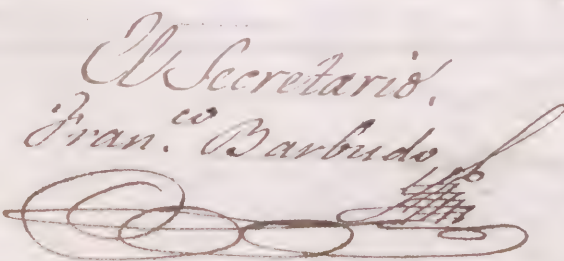 El Secretario.
Fran.co Barbudo